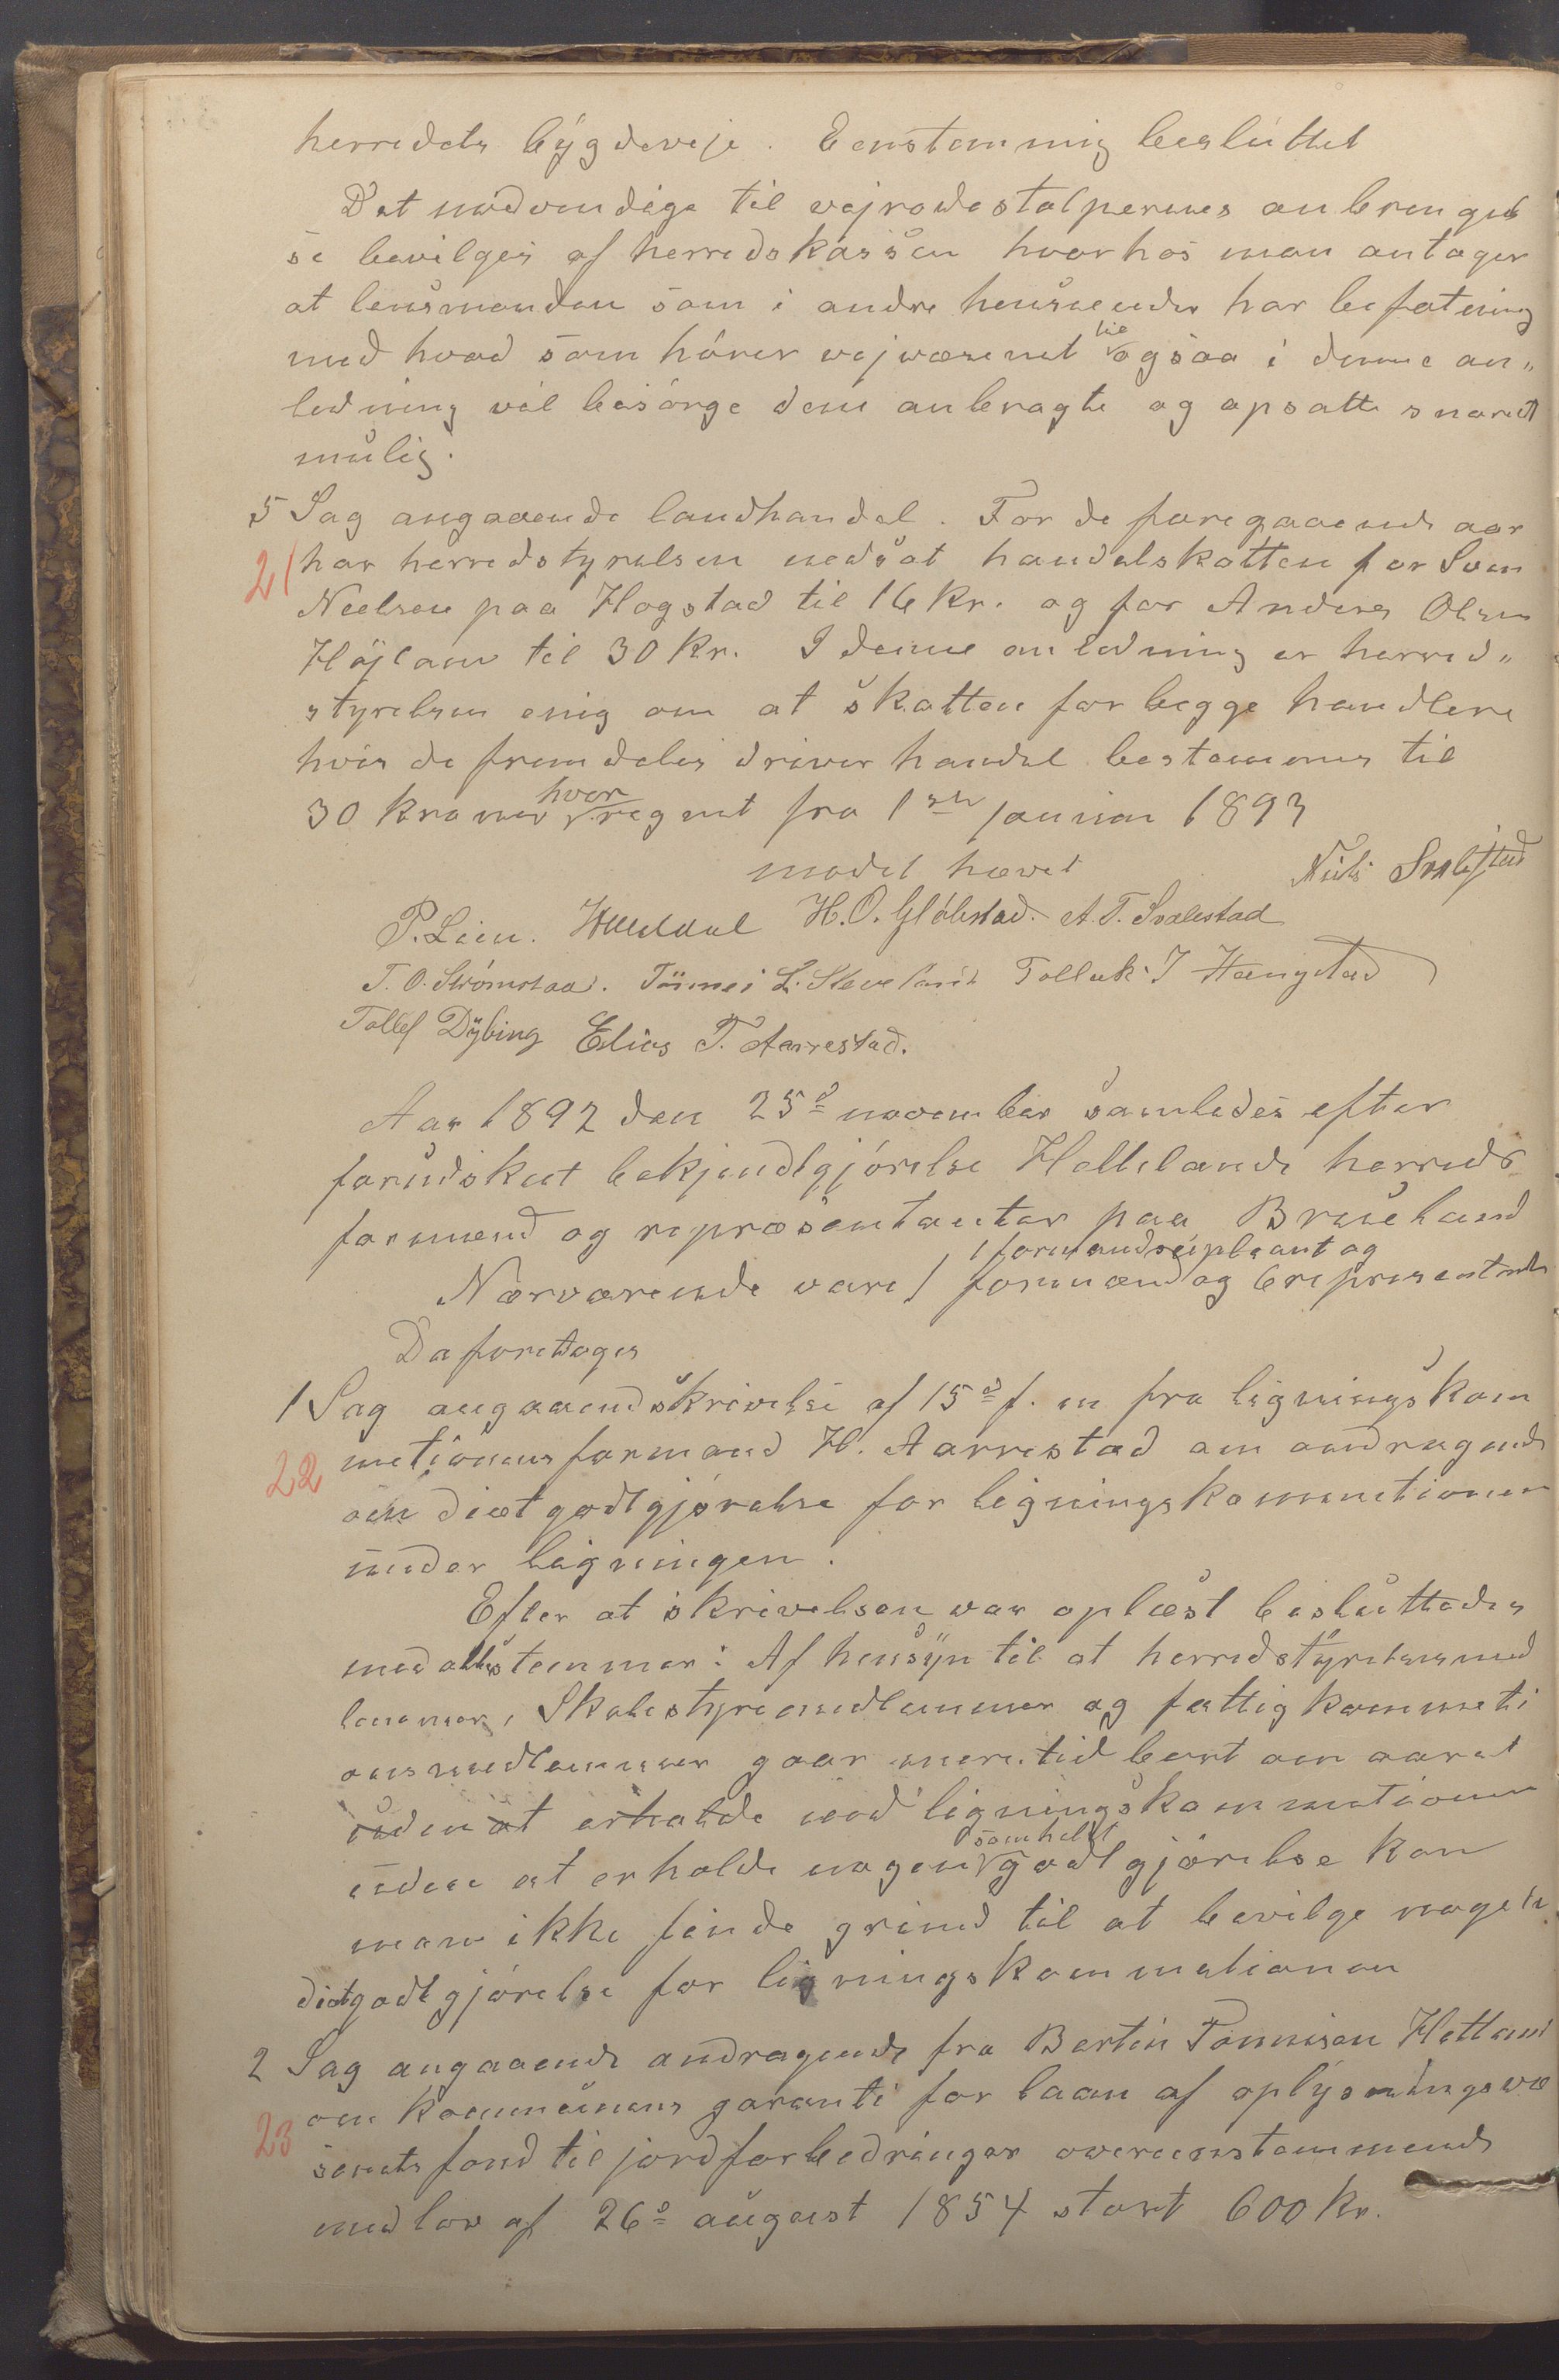 herredets bygdeveje. Eenstemmig besluttet
Det nødvendige til vejrodestolpernes anbringel
se bevilges af herredskassen hvorhos man antager
at lensmanden som i andre hensender har befatning
med hvad som hører vejvæsenet til ogsaa i denne an„
ledning vil besørge dem anbragte og opsatte snarest
mulig.
5 Sag angaaende landhandel. For de foregaaende aar
21 har herredstyrelsen nedsat handelskatten for Sven
Neelsen paa Hogstad til 16 kr. og for Anders Olsen
Højland til 30 kr. I denne anledning er herred„
styrelsen enig om at skatten for begge handlere
hvis de fremdeles driver handel bestemmes til
30 kroner hver regnet fra 1ste januar 1893
mødet hævet
Nils Svalestad
P. Lien. H. O. Slølestad. A. T. Svalestad
T. O. Strømstad. Tønnes L. Sleveland Tollak I Haugstad
Tollef Dybing Elias T. Aarrestad.
Aar 1892 den 25de november samledes efter
forudskeet bekjendtgjørelse Hellelands herreds
formænd og repræsentanter paa Brueland
Nærværende vare 1 formænd 1 formandsupleant og og 6 representanter
Da foretoges
1 Sag angaaend skrivelse af 15de f. m fra ligningskom
22 metionens formand H. Aarrestad om andragende
om diæt godtgjørelse for ligningskommetionen
under ligningen.
Efter at skrivelsen var oplæst besluttedes
med alle stemmer: Af hensyn til at herredstyrelsesmed
lemmer, Skolestyremedlemmer og fattigkommeti
onsmedlemmer gaar mere tid bort om aaret
uden at erholde end ligningskommetionen
uden at erholde nogen somhelst godtgjørelse kan
man ikke finde grund til at bevilge nogen
diætgodtgjørelse for ligningskommetionen
2 Sag angaaende andragende fra Bertin Tønnisen Hetland
23 om kommunens garanti for laan af oplysningsvæ
senets fond til jordforbedringer overeenstemmende
med lov af 26de august 1854 stort 600 kr.